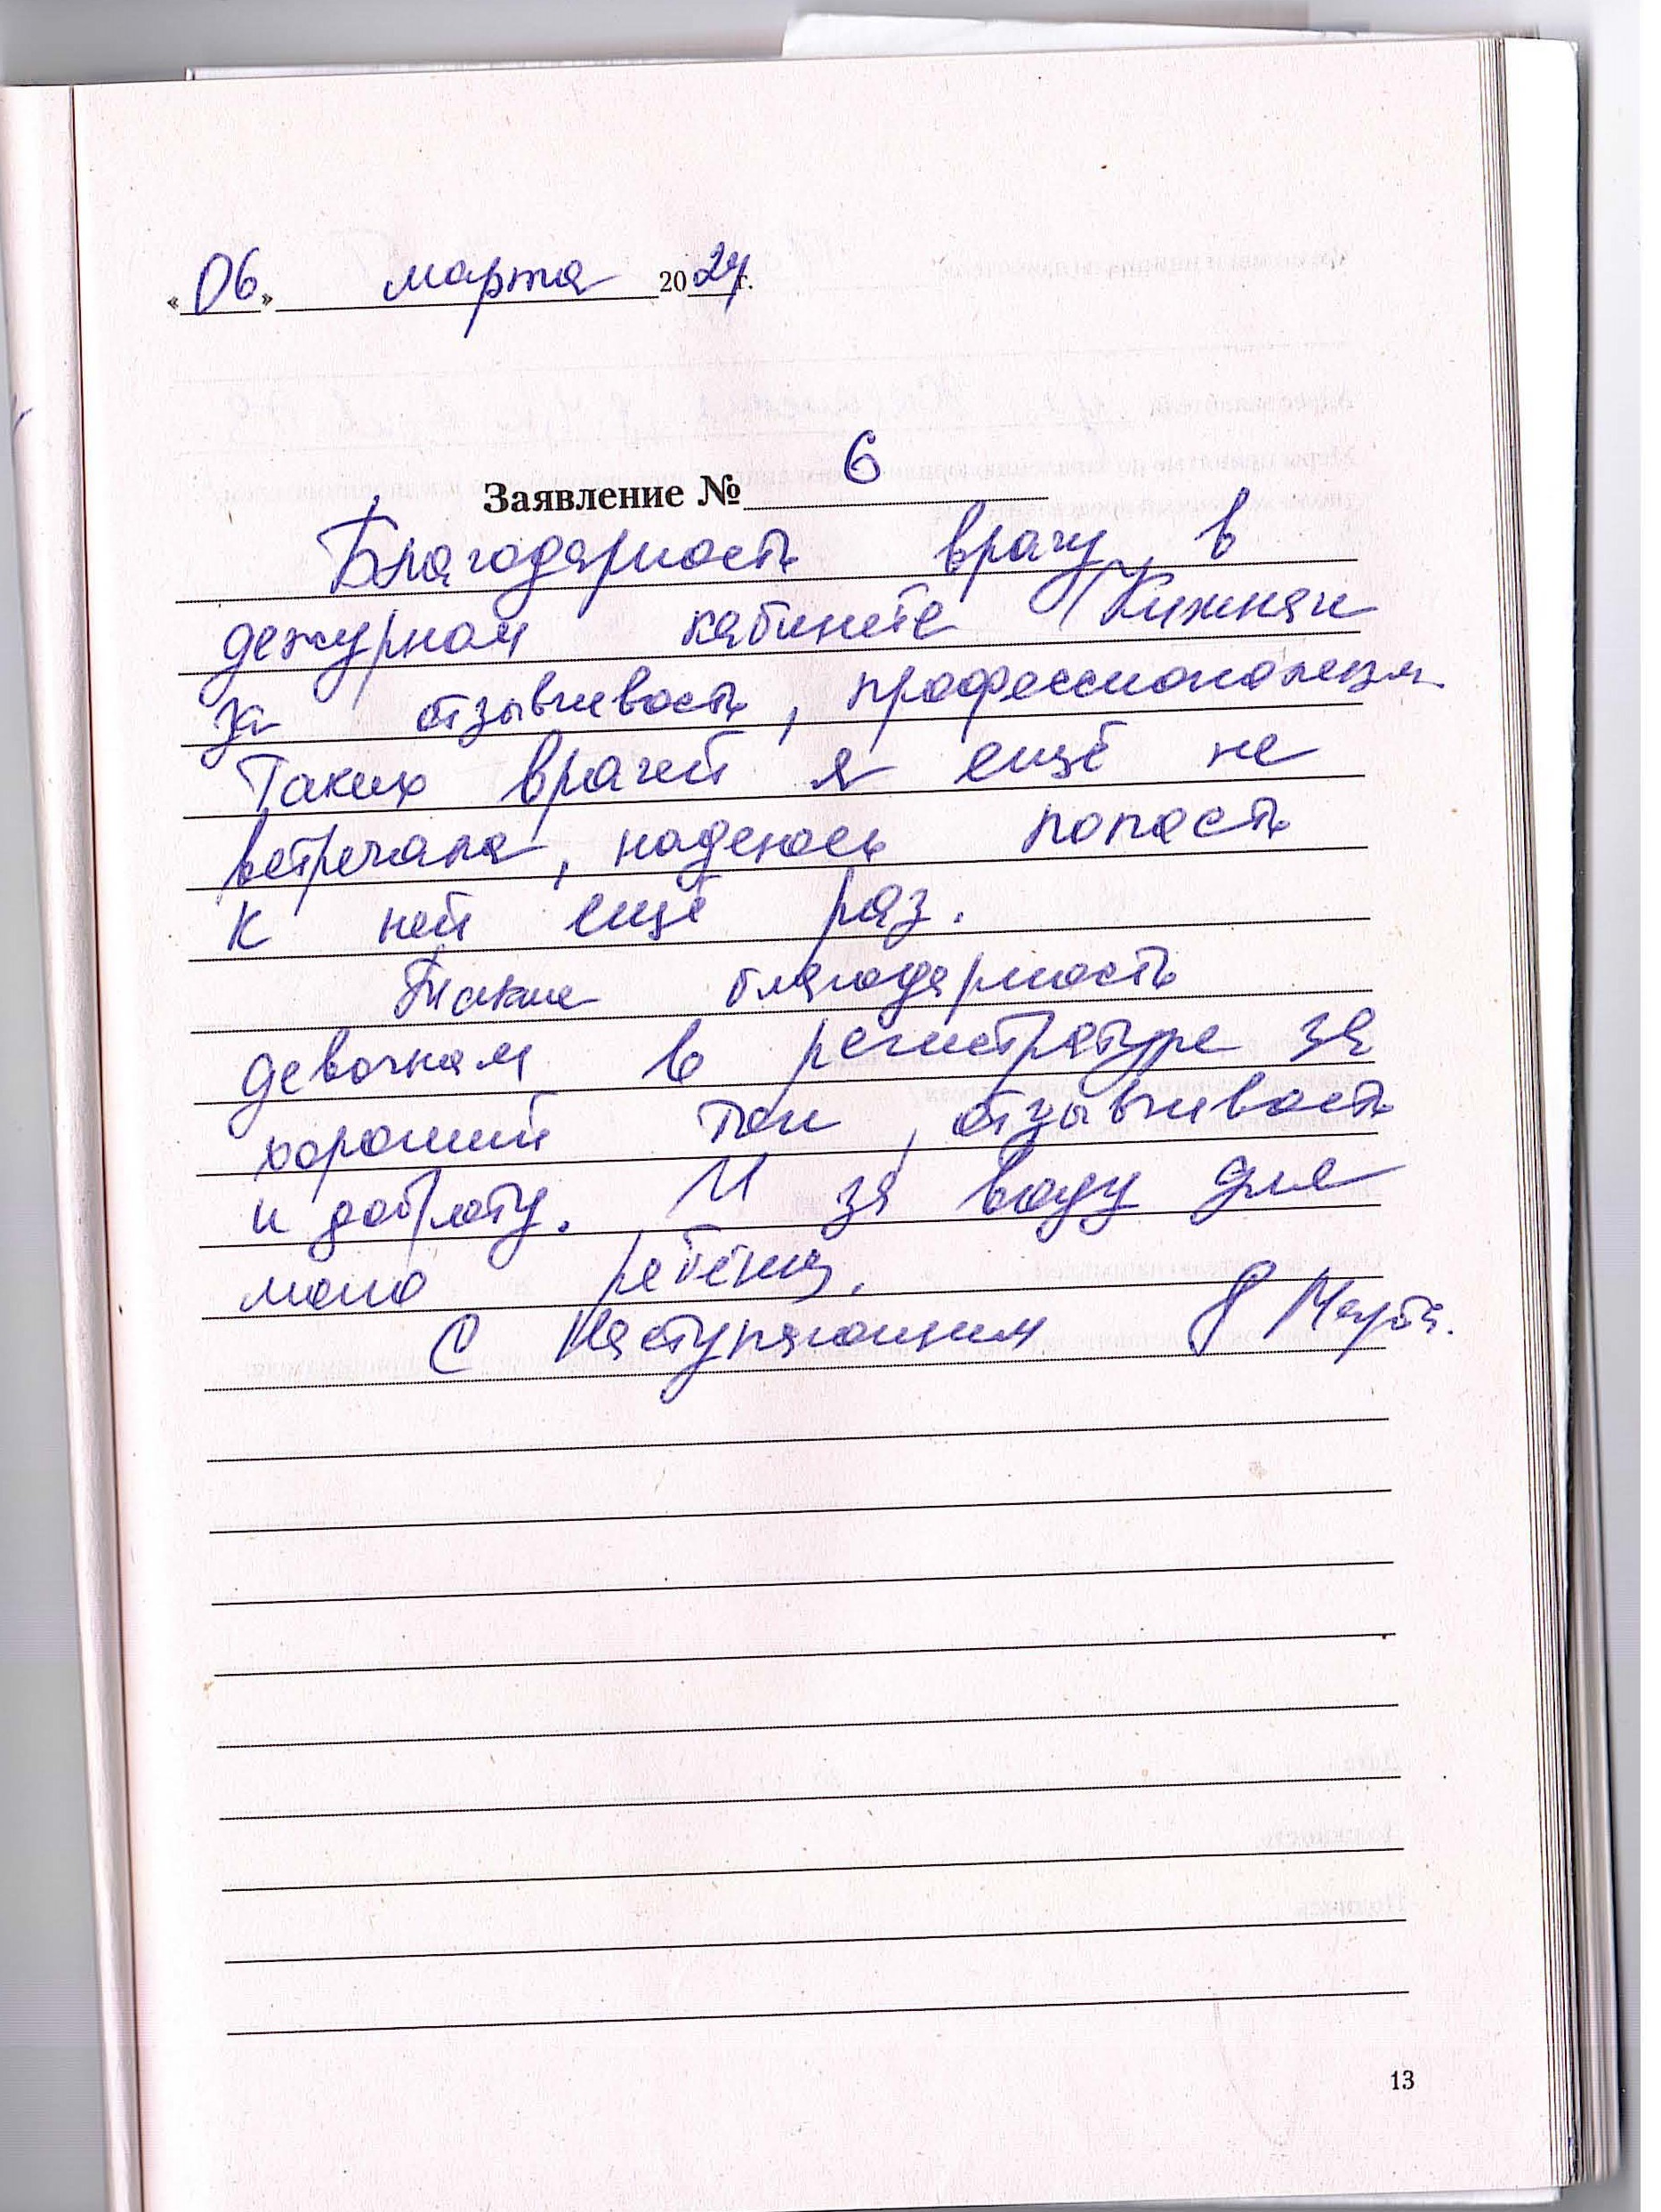 «06» марта 2024г.
Заявление № 6
Благодарность врачу в
дежурном кабинете
за отзывчивость, профессионализм.
Таких врачей я ещё не
встречала, надеюсь попасть
к ней ещё раз.
Также благодарность
девочкам в регистратуре за
хороший тон, отзывчивость
и доброту. И за воду для
моего ребёнка.
С Наступающим 8 Марта.
13